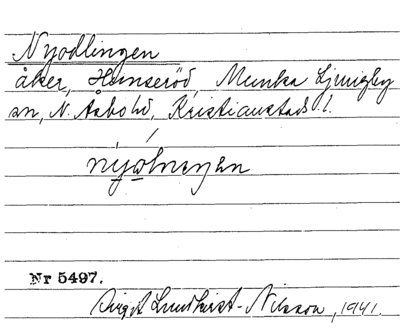 Nyodlingen
åker, Hunseröd, Munka Ljungby
sn, N. Åsbo hd, Kristianstads l.
Nr 5497.
Birgit Lundkvist-Nilsson, 1941.